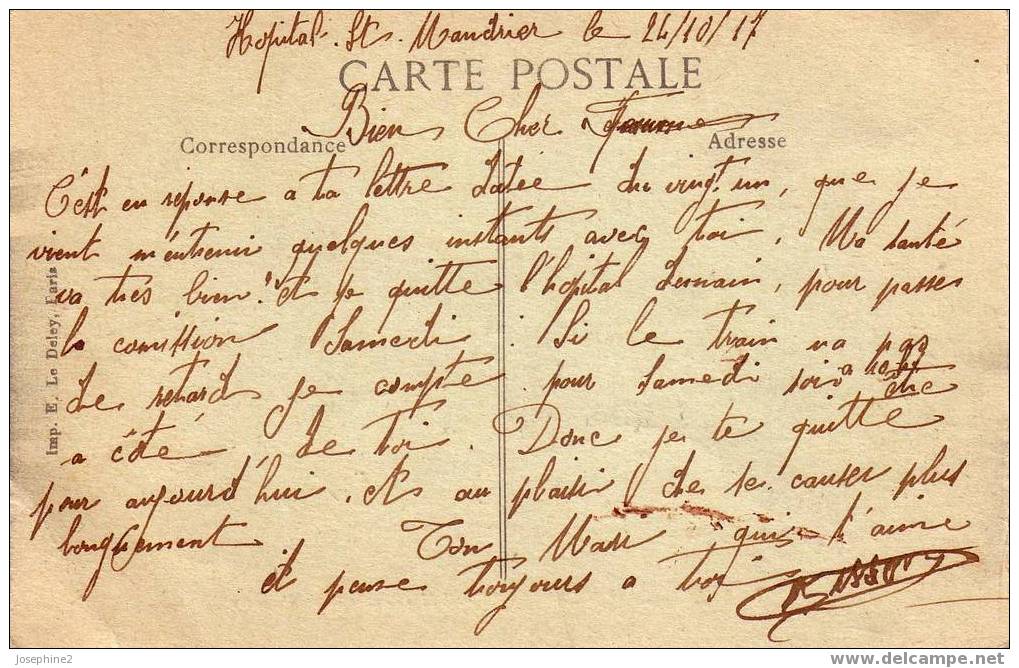 Hopital. St. Mandrier le 24/10/17
CARTE POSTALE
Bien Cher Femme
Correspondance
Adresse
C'est en reponse a ta lettre datée du vingt un, que je
vient m'entrenir quelques instants avec toi. Ma santé
va tres bien. et je quitte l'hopital demain, pour passer
la comission Samedi. Si le train na pas
de retard je compte pour Samedi soir a
a côté de toi. Donc je te quitte
pour aujourd'hui. et au plaisir de se causer plus
longuement Ton Mari qui t'aime
et pense toujours a toi
Imp. E. Le Deley, Paris
Josephine2
www.delcampe.net